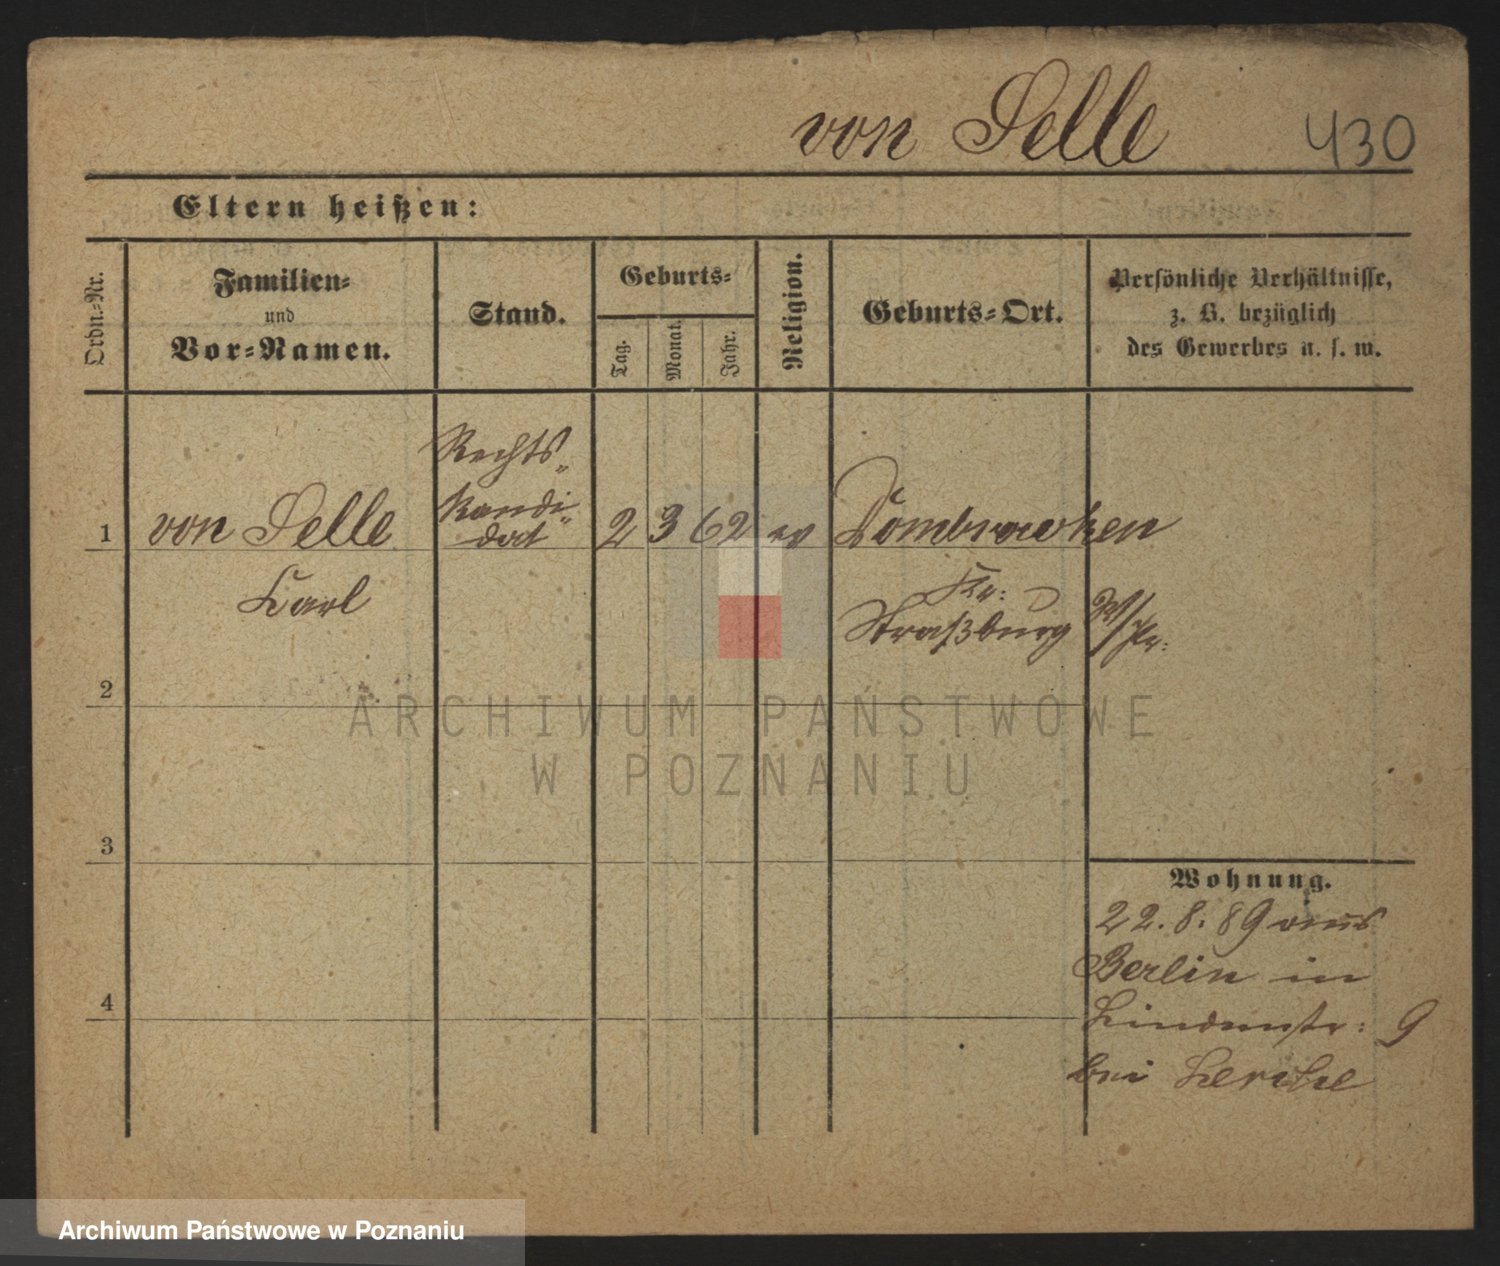 von Selle 430
Eltern heißen:
Ordn.-Nr.
Familien-
und
Vor-Namen.
Stand.
Geburts-
Tag.
Monat.
Jahr.
Religion.
Geburts-Ort.
Persönliche Verhältnisse,
z. B. bezüglich
des Gewerbes u. s. w.
Rechts-
kandi-
dat
1 von Selle 2 3 62 ev Dombrowken
Carl
Kr:
Straßburg W/Pr:
2
3
4
Wohnung.
22. 8. 89 aus
Berlin in
Lindenstr: 9
bei Lerche
ARCHIWUM PAŃSTWOWE
W POZNANIU
Archiwum Państwowe w Poznaniu